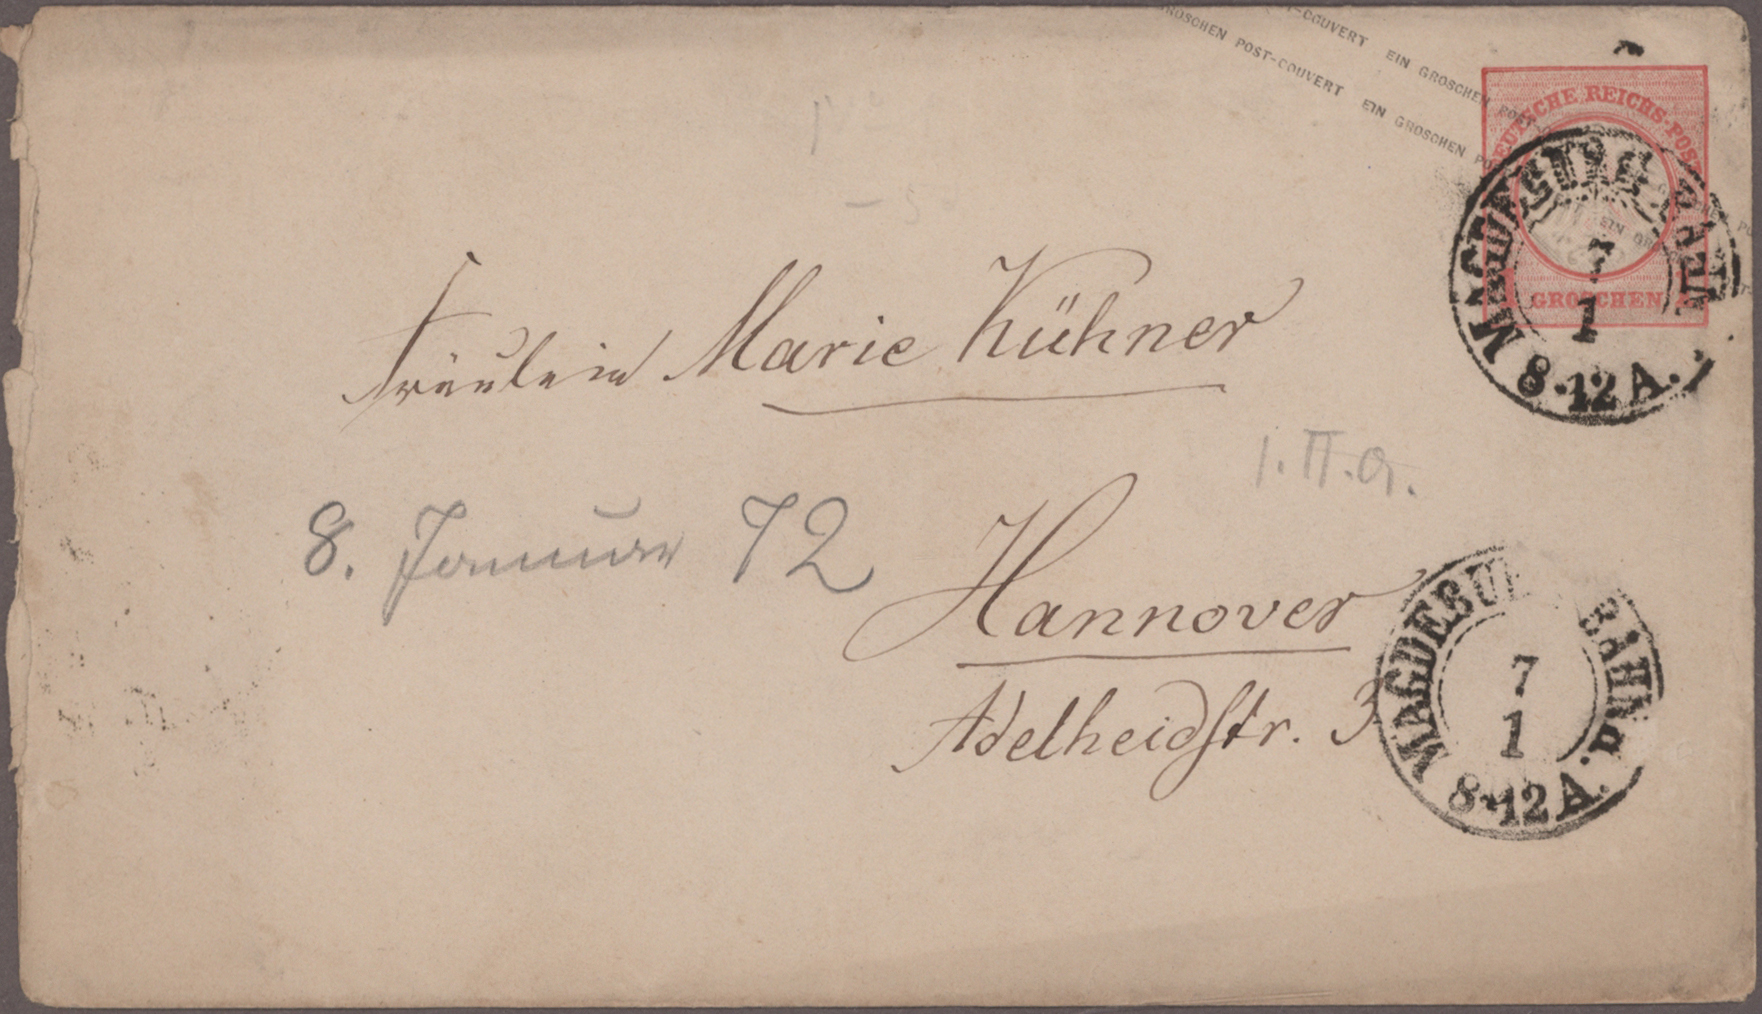 POST-COUVERT EIN GROSCHEN POST
GROSCHEN POST-COUVERT EIN GROSCHEN
DEUTSCHE REICHS-POST
1 GROSCHEN 1
MAGDEBURG BAHNH.
7
1
8-12 A.
Fräulein Marie Kühner
1. II. a.
8. Januar 72
Hannover
Adelheidstr. 3
MAGDEBURG BAHNH.
7
1
8-12 A.